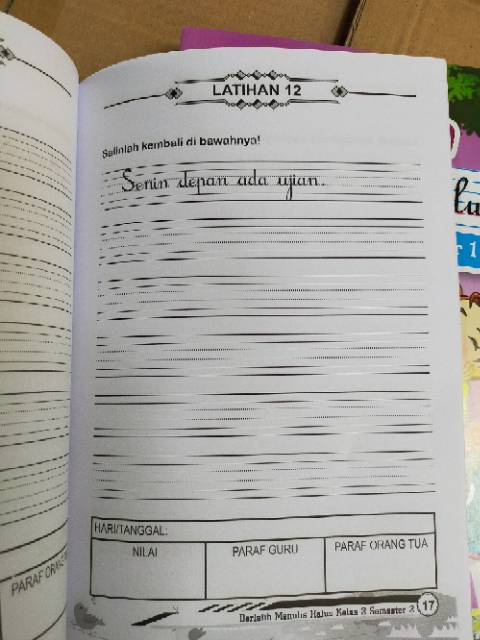 LATIHAN 12
Salinlah kembali di bawahnya!
Senin depan ada ujian.
HARI/TANGGAL:
NILAI
PARAF GURU
PARAF ORANG TUA
Berlatih Menulis Halus Kelas 2 Semester 2
17
PARAF ORANG
lu
r 1